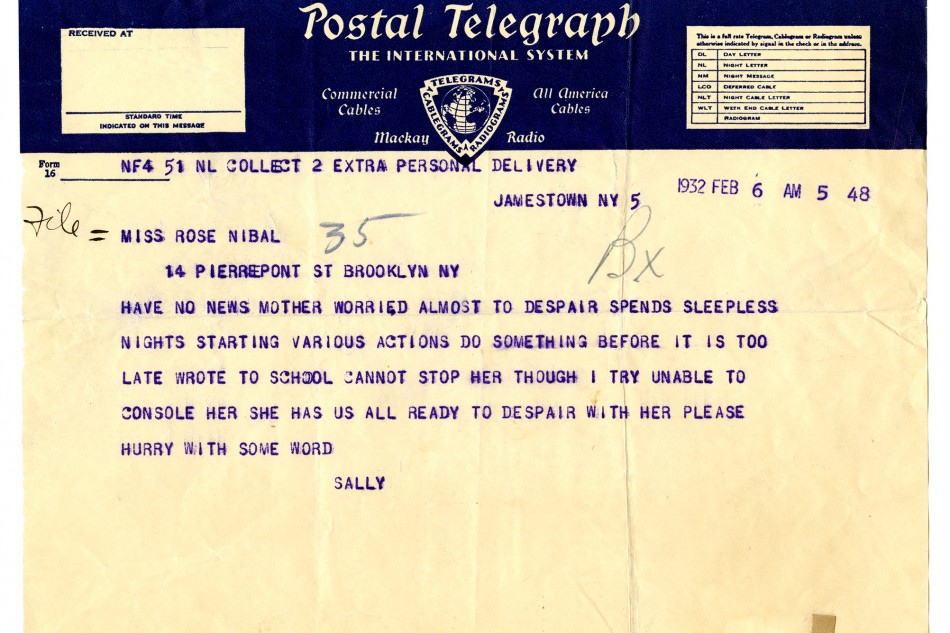 Postal Telegraph
THE INTERNATIONAL SYSTEM
Commercial Cables
All America Cables
Mackay Radio
TELEGRAMS CABLEGRAMS RADIOGRAMS
RECEIVED AT
STANDARD TIME
INDICATED ON THIS MESSAGE
This is a full rate Telegram, Cablegram or Radiogram unless
otherwise indicated by signal in the check or in the address.
DL DAY LETTER
NL NIGHT LETTER
NM NIGHT MESSAGE
LCO DEFERRED CABLE
NLT NIGHT CABLE LETTER
WLT WEEK END CABLE LETTER
RADIOGRAM
Form
16
NF4 51 NL COLLECT 2 EXTRA PERSONAL DELIVERY
JAMESTOWN NY 5
1932 FEB 6 AM 5 48
File
= MISS ROSE NIBAL 35
Bx
14 PIERREPONT ST BROOKLYN NY
HAVE NO NEWS MOTHER WORRIED ALMOST TO DESPAIR SPENDS SLEEPLESS
NIGHTS STARTING VARIOUS ACTIONS DO SOMETHING BEFORE IT IS TOO
LATE WROTE TO SCHOOL CANNOT STOP HER THOUGH I TRY UNABLE TO
CONSOLE HER SHE HAS US ALL READY TO DESPAIR WITH HER PLEASE
HURRY WITH SOME WORD
SALLY